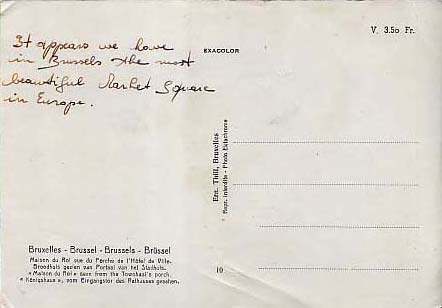 V. 3.50 Fr.
EXACOLOR
It appears we have
in Brussels the most
beautiful Market Square
in Europe.
Ern. Thill, Bruxelles
Repr. Interdite - Photo Exlaschrove
Bruxelles - Brussel - Brussels - Brüssel
Maison du Roi vue du Porche de l'Hôtel de Ville.
Broodhuis gezien van Portaal van het Stadhuis.
«Maison du Roi» seen from the Townhall's porch.
«Königshaus», vom Eingangstor des Rathauses gesehen.
10